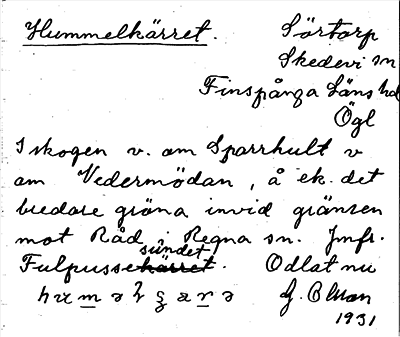 Hummelkärret. Sörtorp
Skedevi sn
Finspånga läns hd
Ögl
I skogen v. om Sparrhult v
om Vedermödan, å ek. det
bredare gröna invid gränsen
mot Råd i Regna sn. Jmfr.
sundet
Fulpussekärret. Odlat nu
G. Olson
1931